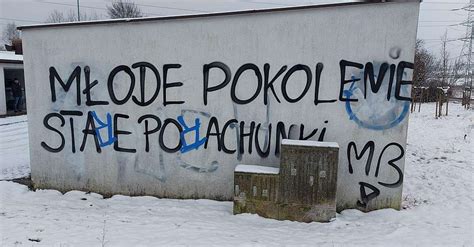 MŁODE POKOLENIE
STARE PORACHUNKI
MB